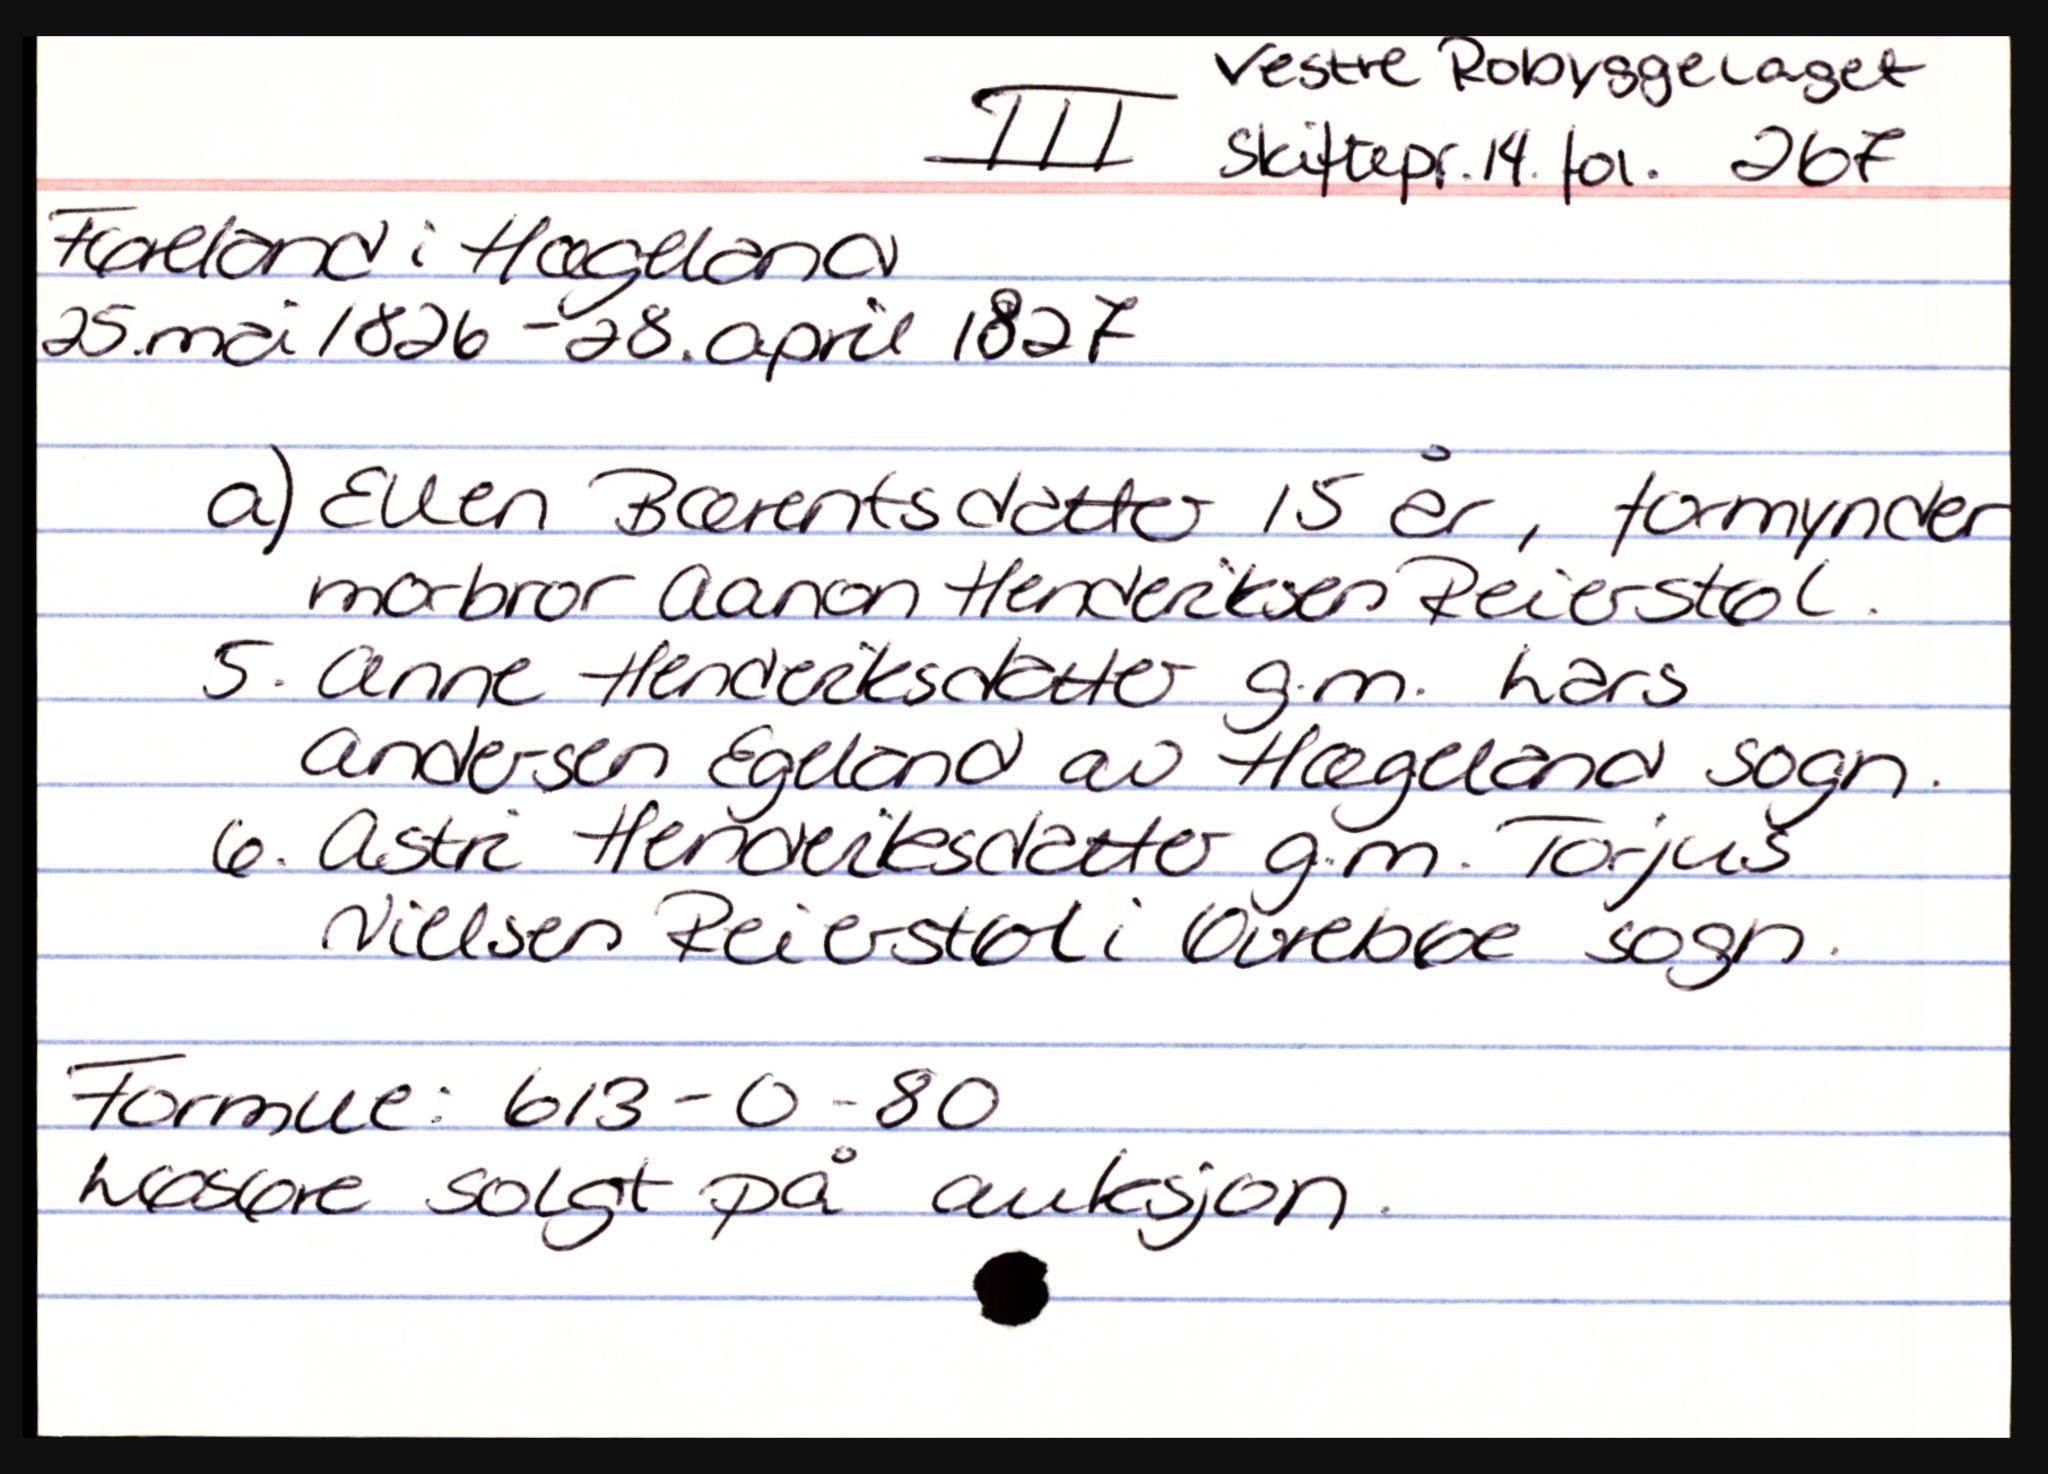 Vestre Robyggelaget
III
Skiftepr. 14. fol. 267
Føreland i Hægeland
25. mai 1826 - 28. april 1827
a) Ellen Bærentsdatter 15 år, formynder
morbror Aanon Henderiksen Reierstøl.
5. Anne Henderiksdatter g.m. Lars
Andersen Egeland av Hægeland sogn.
6. Astri Henderiksdatter g.m. Torjus
Nielsen Reierstøl i Øvrebøe sogn.
Formue: 613 - 0 - 80
Løsøre solgt på auksjon.